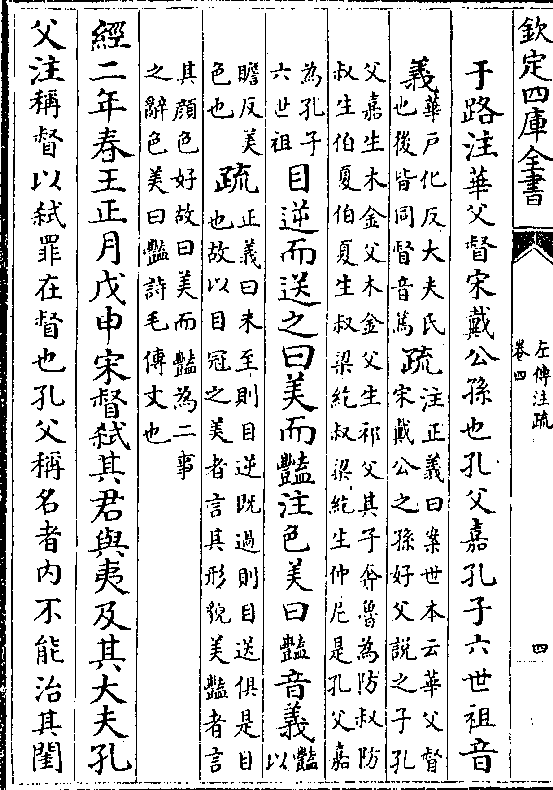 欽定四庫全書
左傳注疏
卷四
四
于路注華父督宋戴公孫也孔父嘉孔子六世祖音
義
華戶化反大夫氏
也後皆同督音篤
疏
注正義曰案世本云華父督
宋戴公之孫好父說之子孔
父嘉生木金父木金父生祁父其子奔魯為防叔防
叔生伯夏伯夏生叔梁紇叔梁紇生仲尼是孔父嘉
為孔子
六世祖
目逆而送之曰美而豔注色美曰豔音義
豔
以
贍反美
色也
疏
正義曰未至則目逆既過則目送俱是目
也故以目冠之美者言其形貌美豔者言
其顏色好故曰美而豔為二事
之辭色美曰豔詩毛傳文也
經二年春王正月戊申宋督弒其君與夷及其大夫孔
父注稱督以弒罪在督也孔父稱名者內不能治其閨